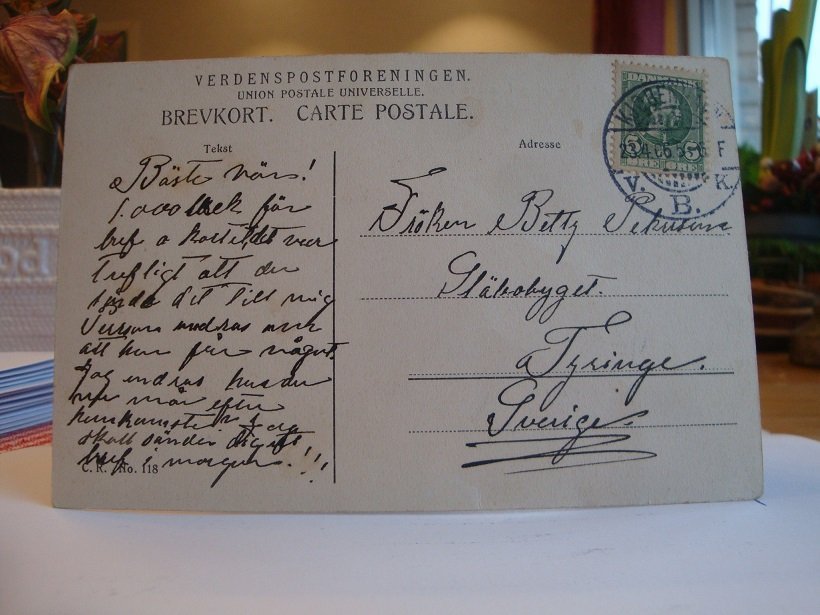 VERDENSPOSTFORENINGEN.
UNION POSTALE UNIVERSELLE.
BREVKORT. CARTE POSTALE.
Tekst
Adresse
DANMARK
5 5
ØRE ØRE
V. B. K.
Bäste vän!
1.000 tack för
bref o kortet det var
trefligt att du
det till mig
undras
att hon får något.
Jag undras hur du
mår efter
hemkomsten Jag
skall sända dig ett
bref i morgon.!!!
C. R. No. 118
Fröken Betty
Tyringe.
Sverige.